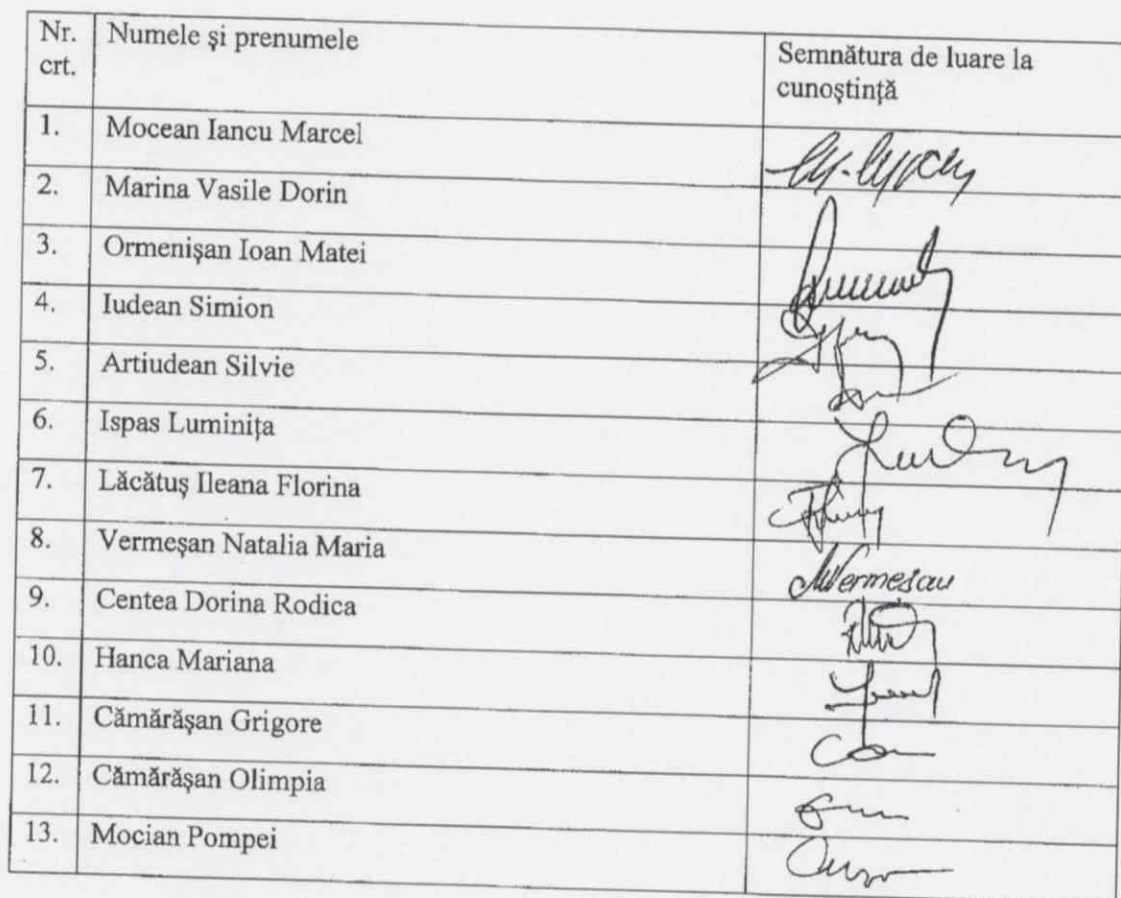 Nr. crt.
Numele și prenumele
Semnătura de luare la cunoștință
1. Mocean Iancu Marcel
2. Marina Vasile Dorin
3. Ormenișan Ioan Matei
4. Iudean Simion
5. Artiudean Silvie
6. Ispas Luminița
7. Lăcătuș Ileana Florina
8. Vermeșan Natalia Maria
NVermeșan
9. Centea Dorina Rodica
10. Hanca Mariana
11. Cămărășan Grigore
12. Cămărășan Olimpia
13. Mocian Pompei